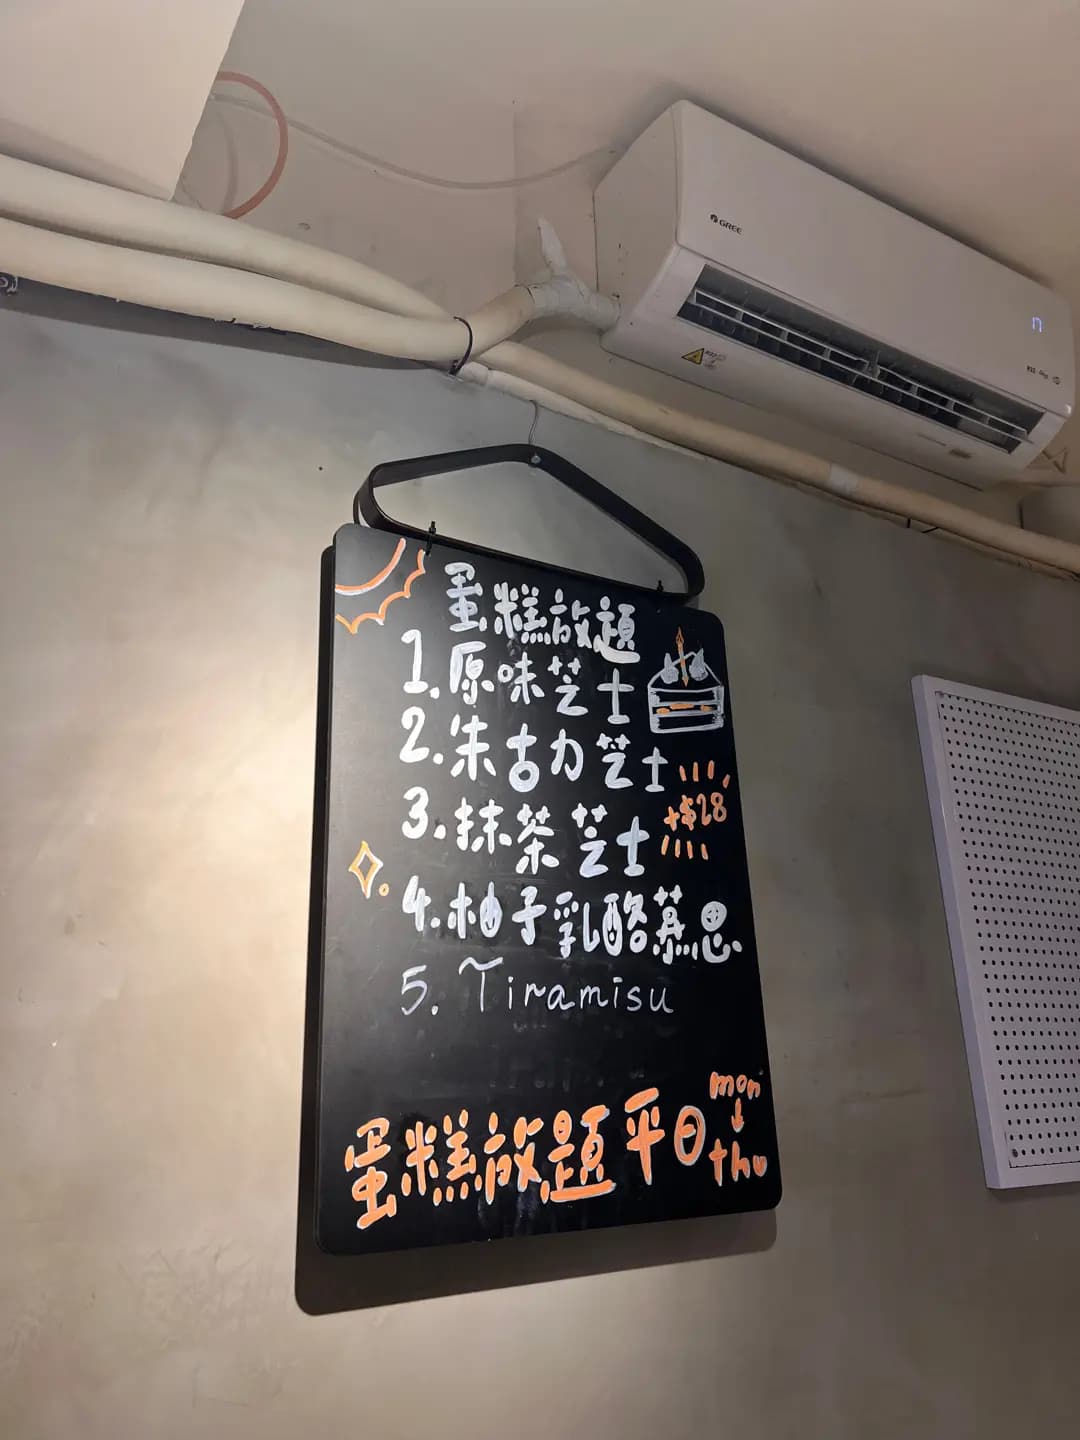 GREE
17
蛋糕放題
1. 原味芝士
2. 朱古力芝士
+$28
3. 抹茶芝士
4. 柚子乳酪慕思
5. Tiramisu
蛋糕放題平日
mon
↓
thu